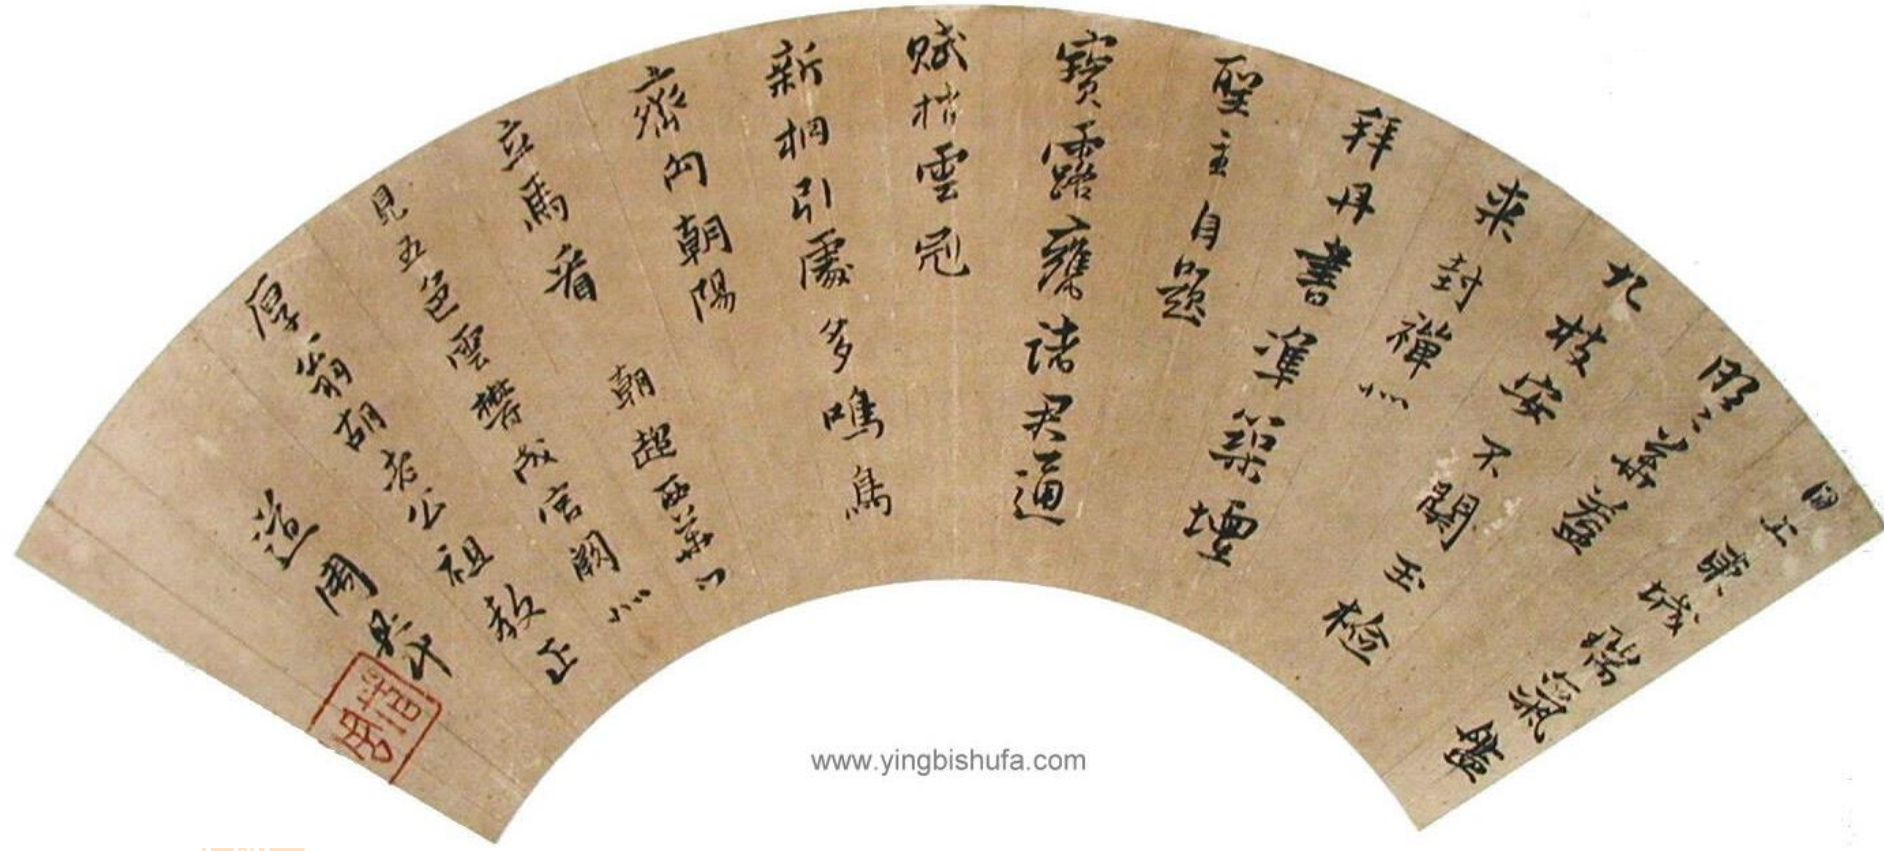 日上東城瑞氣盤
明〻華蓋
九枝安不關玉檢
來封禪
拜丹書準築壇
聖主自題
寶露甕諸君通
賦雲冠
新桐引處多鳴鳥
齊向朝陽
立馬看
朝趨西華門
見五色雲鬱成宮闕
厚翁胡老公祖教正
道周
www.yingbishufa.com